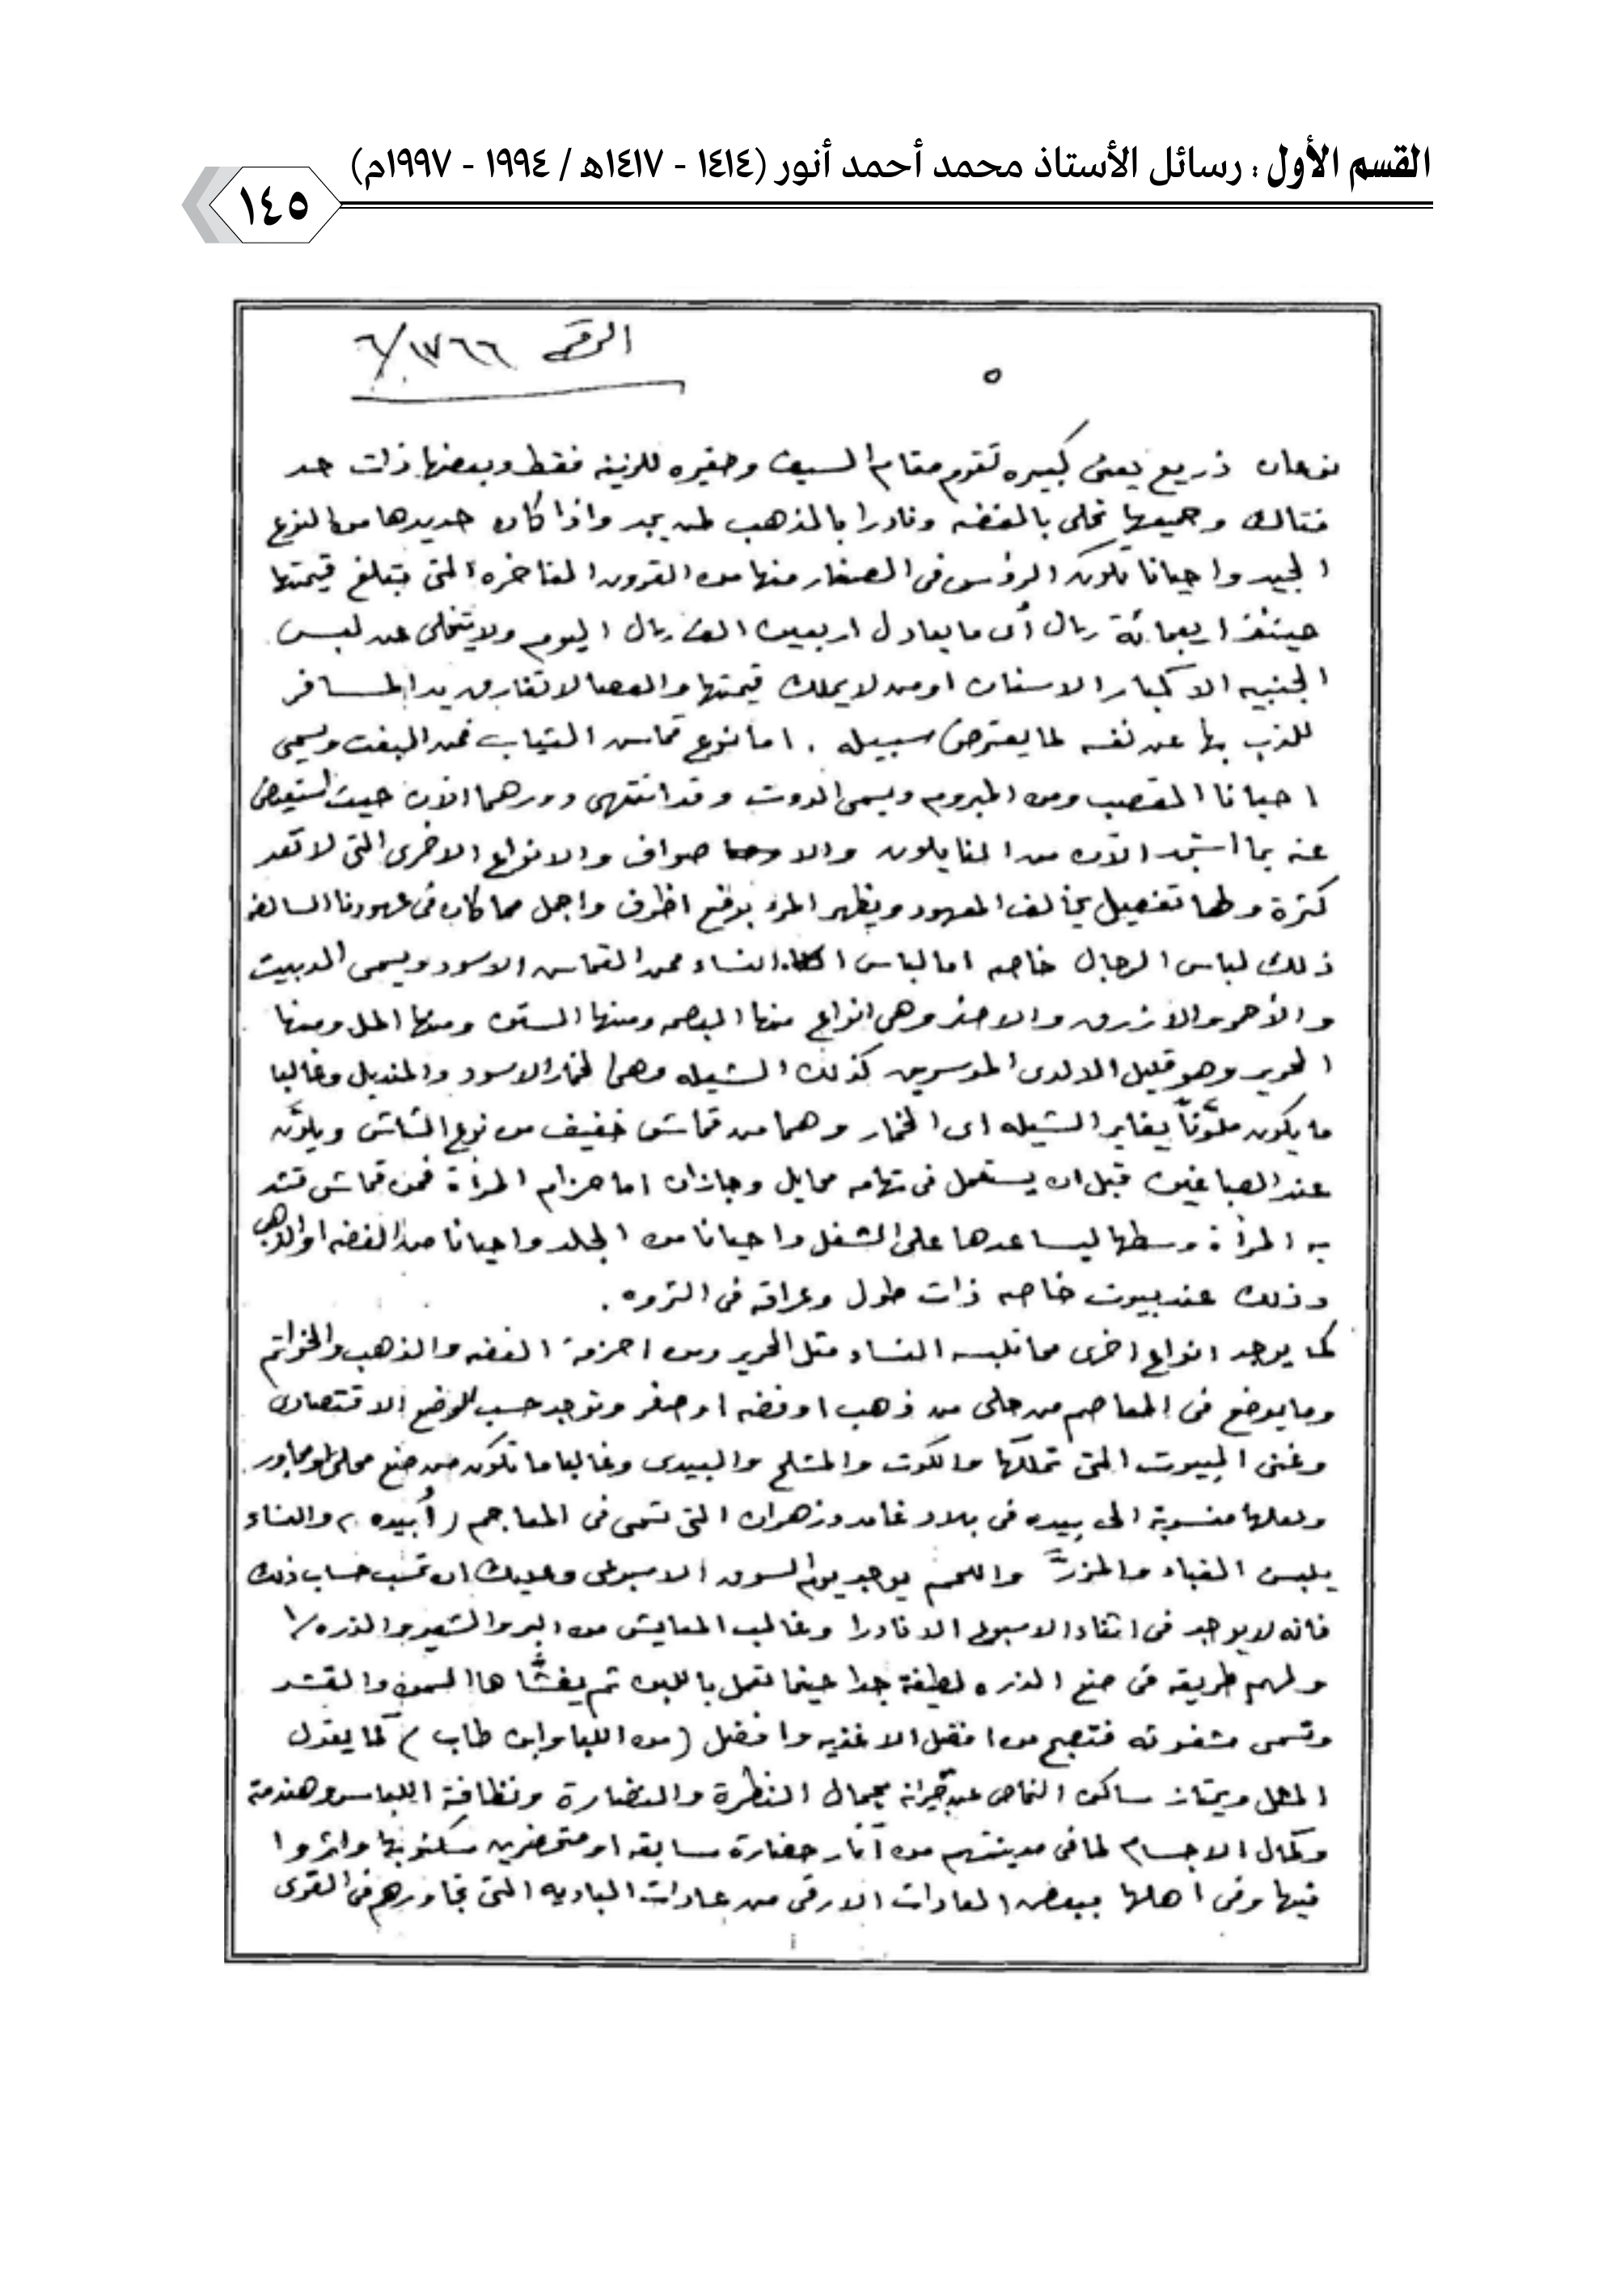 القسم الأول : رسائل الأستاذ محمد أحمد أنور (١٤١٤ - ١٤١٧هـ / ١٩٩٤ - ١٩٩٧م)
١٤٥
الرقم ١٧٦٦/٦
٥
نوعان ذريع يعنى كبيره تقوم مقام السيف وصغيره للزينه فقط وبعضها ذات حد
فتاك وجميعها تحلى بالفضه ونادرا بالذهب لمن يجد واذا كان حديدها من النوع
الجيد واحيانا تكون الرؤس فى الصغار منها من القرون الفاخره التى تبلغ قيمتها
حينئذ اربعمائة ريال أى مايعادل اربعين الف ريال اليوم ولا يتخلى عن لبس
الجنبيه الا كبار الاسنان او من لا يملك قيمتها والعصا لا تفارق يد المسافر
للذب بها عن نفسه لما يعترض سبيله . اما نوع قماس الثياب فمن البفت ويسمى
احيانا المقصب ومن المبروم ويسمى الدوت وقد انتهى دورهما الآن حيث استعيض
عنه بما استجد الآن من النايلون والا صواف والانواع الاخرى التى لا تعد
كثرة ولها تفصيل يخالف المعهود ويظهر المرء بوضع اظرف واجمل مما كان فى عهودنا السالفه
ذلك لباس الرجال خاصه اما لباس النساء فمن القماس الاسود ويسمى الدبيت
والأحمر والازرق والاخضر وهى انواع منها البصمه ومنها الستن ومنها الململ ومنها
الحرير وهو قليل الا لدى الموسرين كذلك الشيله وهى الخمار الاسود والمنديل وغالبا
ما يكون ملوَّناً يغاير الشيله اى الخمار وهما من قماش خفيف من نوع الشاش ويلوَّن
عند الصباغين قبل ان يستعمل فى تهامه محايل وجازان اما حزام المرأة فمن قماش تشد
به المرأة وسطها ليساعدها على الشغل واحيانا من الجلد واحيانا من الفضه او الذهب
وذلك عند بيوت خاصه ذات طول وعراقه فى الثروه .
كما يوجد انواع اخرى مما تلبسه النساء مثل الحرير ومن احزمة الفضه والذهب والخواتم
وما يوضع فى المعاصم من حلى من ذهب او فضه او صفر وتوجد حسب الوضع الاقتصادى
وغنى البيوت التى تملكها والكوت والمشلح والبيدى وغالبا ما تكون من صنع محلى او مجاور
ولعلها منسوبة الى بيده فى بلاد غامد وزهران التى تسمى فى المعاجم (أبيده) والنساء
يلبسن القباء والمزرَّ واللحم يوجد يوم السوق الاسبوعى وعليك ان تحسب حساب ذلك
فانه لا يوجد فى اثناء الاسبوع الا نادرا وغالب المعايش من البر والشعير والذره
ولهم طريقه فى صنع الذره لطيفة جدا حينما تعمل باللبن ثم يغشَّاها السمن والقشد
وتسمى مشغوثه فتصبح من افضل الاغذيه وافضل (من اللبا وابن طاب) كما يقول
المثل ويمتاز ساكن النماص عن جيرانه بجمال النظرة والنضارة ونظافة اللباس وهندمة
وكمال الاجسام لما فى مدينتهم من آثار حضارة سابقه او متحضرين سكنو بها واثروا
فيها وفى اهلها ببعض العادات الارقى من عادات الباديه التى تجاورهم فى القرى